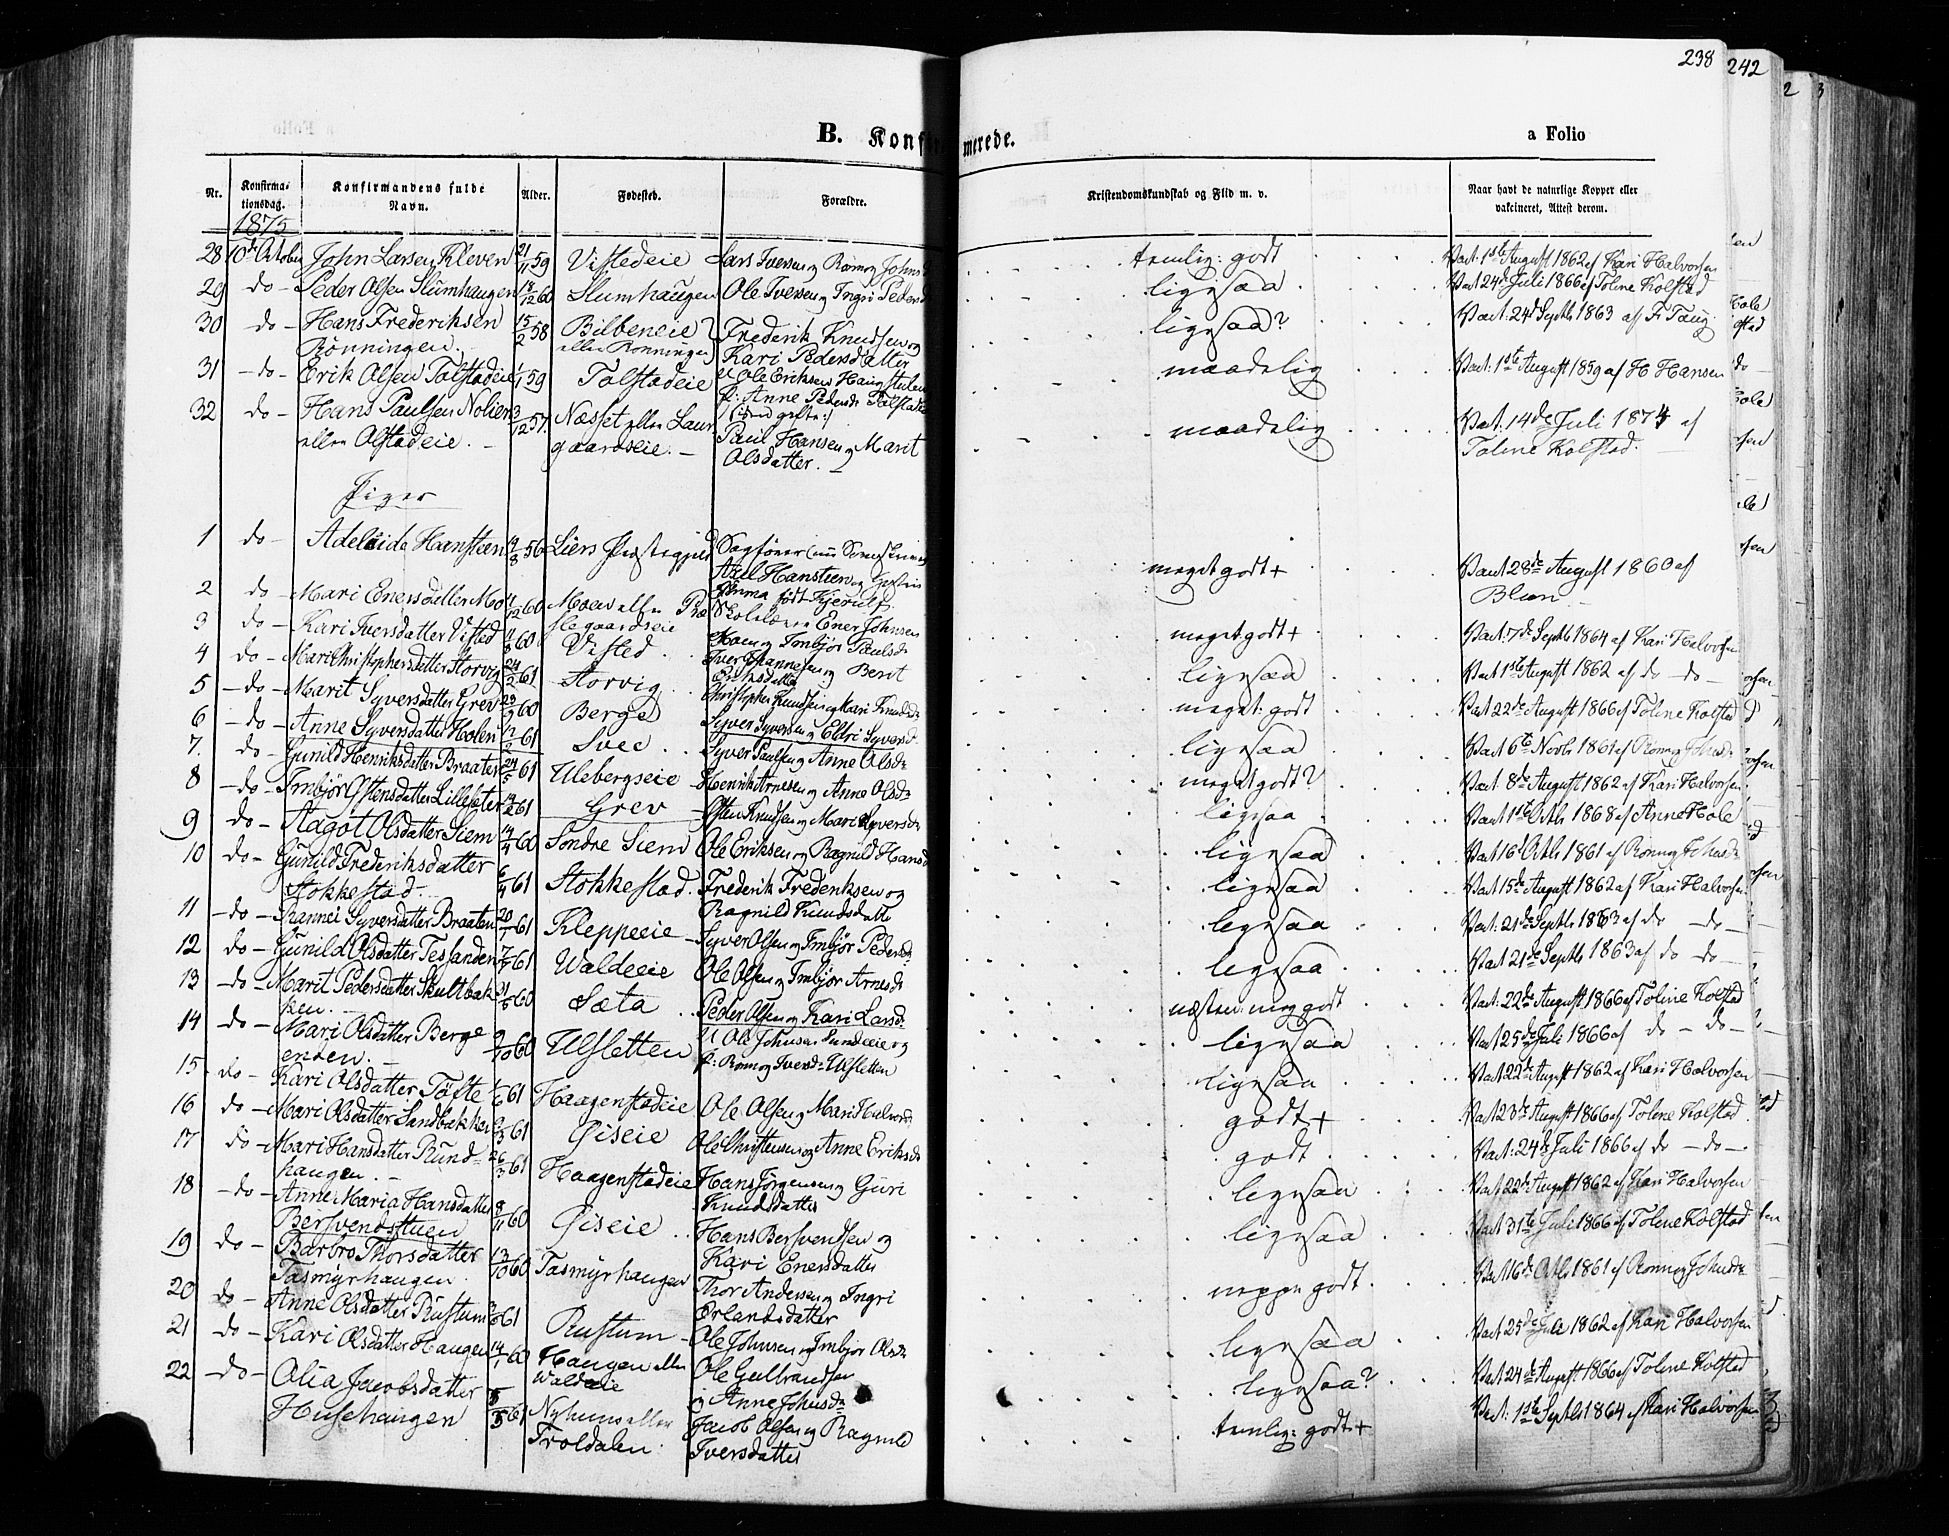 238
242
B. Konfirmerede.
a Folio
Nr.
Konfirma-
tionsdag.
Konfirmandens fulde
Navn.
Alder.
Fødested.
Forældre.
Kristendomskundskab og Flid m. v.
Naar havt de naturlige Kopper eller
vakcineret, Attest derom.
1875
28 10de October John Larsen Kleven 21/11 59 Vistedeie Lars Iversen og Rønnog Johns temlig: godt Vact: 1ste August 1862 af Kari Halvorsen
29 do Peder Olsen Slumhaugen 18/12 60 Slumhaugen Ole Iversen og Ingri Pedersd ligesaa Vact 24de Juli 1866 af Toline Kolstad
30 do Hans Frederiksen 15/2 58 Bilbeneie Frederik Knudsen og ligesaa? Vact. 24de Septb 1863 af
Rønningen. eller Rønningen Kari Pedersdatter
31 do Erik Olsen Tolstadeie 1/1 59 Tolstadeie U Ole Eriksen maadelig Vact: 1ste August 1859 af H Hansen
p: Anne Pedersd Tolstadeie
32 do Hans Paulsen Nolien 3/12 57. Næsset eller Laur maadelig Vact. 14de Juli 1874 af
eller Olstadeie. gaardseie. Paul Hansen og Marit Toline Kolstad.
Olsdatter.
Piger
1 do Adelaide Hansteen 14/8 56 Liers Præstegjeld Sagfører
Axel Hansteen og meget godt + Vact 28de August 1860 af
Emma født Kjerulf. Blum
2 do Mari Enersdatter Mo 60 Moen eller Skolelærer Ener Johnsen meget godt + Vact. 7de Septb 1864 af Kari Halvorsen
Moen og Imbjør Paulsd
3 do Kari Iversdatter Visted 60 Visted Iver Hannesen og Berit ligesaa Vact 1ste August 1862 af do do
Eriksdatter
4 do Mari Christophersdatter Storvig 24/2 61 Storvig Christopher Knudsen og Mari Knudsd meget: godt Vact 22de August 1866 af Toline Kolstad
5 do Marit Syversdatter Grev 60 Berge Syver Syversen og Eldri Syversd ligesaa Vact 6te Novb 1861 af Rønnog Johnsd
6 do Anne Syversdatter Holen 61 Svee Syver Paulsen og Anne Olsd meget godt? Vact 8de August 1862 af Kari Halvorsen
7. do Gunild Henriksdatter Braaten 24/5 61 Ulebergseie Henrik Arnesen og Anne Olsd ligesaa Vact 1ste Octb 1868 af Anne Hole
8 do Imbjør Østensdatter Lillesæter 61 Grev Østen Knudsen og Mari Syversd ligesaa Vact 16 Octb 1861 af Rønnog Johnsd
9 do Aagot Olsdatter Siem 14/4 60 Søndre Siem Ole Eriksen og Ragnild Hansd ligesaa Vact 15de August 1862 af Kari Halvorsen
10 do Gunild Frederiksdatter 6/4 61 Stokkestad Frederik Frederiksen og ligesaa Vact: 21de Septb 1863 af do do
Stokkestad Ragnild Knudsdatter
11 do Rannei Syversdatter Braaten 20/1 61 Kleppeeie Syver Olsen og Imbjør Pedersd ligesaa Vact 21de Septb 1863 af do do
12 do Gunild Olsdatter Tessanden 61 Waldeeie Ole Olsen og Imbjør Arnesd næsten: meg godt Vact: 22de August 1866 af Toline Kolstad
13 do Marit Pedersdatter Skultbak 60 Sæta Peder Olsen og Kari Larsd. ligesaa Vact 25de Juli 1866 af do do
ken.
14 do Mari Olsdatter Berge 9/10 60 Ulsletten U Ole Johnsen Sundeeie og ligesaa Vact 22de August 1862 af Kari Halvorsen
enden. p: Rønnog Iversd Ulsletten
15 do Kari Olsdatter Tøfte 61 Haagenstadeie Ole Olsen og Mari Halvorsd godt + Vact 23de August 1866 af Toline Kolstad
16 do Mari Olsdatter Sandbakken 61 Giseie Ole Christensen og Anne Eriksd godt Vact: 24de Juli 1866 af do do
17 do Mari Hansdatter Rund- 26/3 61 Haagenstadeie Hans Jørgensen og Guri ligesaa Vact 22de August 1862 af Kari Halvorsen
haugen. Knudsdatter
18 do Anne Maria Hansdatter 8/11 60 Giseie Hans Bersvendsen og ligesaa Vact 31te Juli 1866 af Toline Kolstad
Bersvendsstuen Kari Enersdatter
19 do Barbro Thorsdatter 13/10 60 Tasmyrhaugen Thor Andersen og Ingri neppe godt Vact 16de Octb 1861 af Rønnog Johnsd
Tasmyrhaugen. Erlandsdatter
20 do Anne Olsdatter Rustum 61 Rustum Ole Johnsen og Imbjør Olsd ligesaa Vact 25de Juli 1862 af Kari Halvorsen
21 do Kari Olsdatter Haugen 14/1 60 Haugen eller Ole Gulbrandsen ligesaa? Vact 24de August 1866 af Toline Kolstad
Waldeeie og Anne Johnsd
22 do Olia Jacobsdatter 61 Nyhuus eller Jacob Olsen og Ragnild temlig: godt + Vact: 1ste Septb 1864 af Kari Halvorsen
Husehaugen Troldalen. Iversdatter